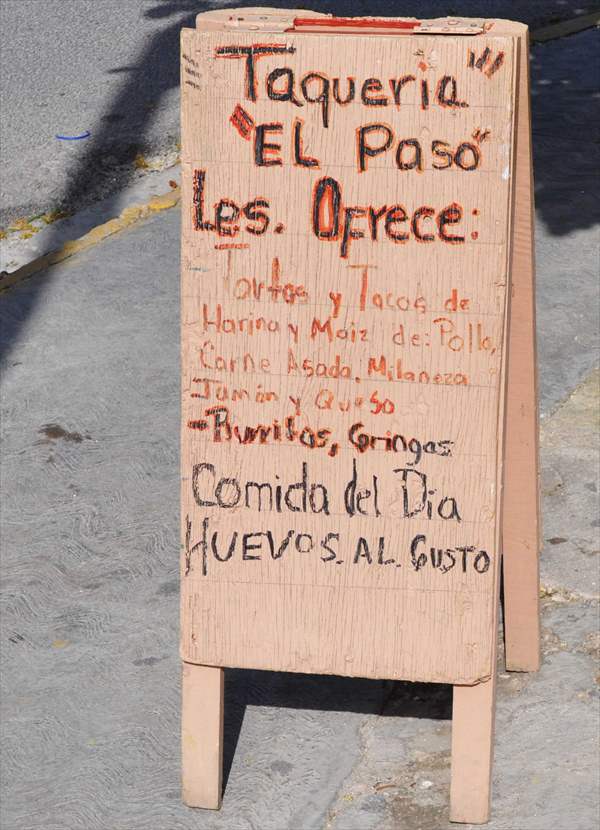 Taqueria"
"EL Paso"
Les. Ofrece:
Tortas y Tacos de
Harina y Maiz de: Pollo,
Carne Asada, Milaneza
Jamón y Queso
-Burritos, Gringas
Comida del Dia
HUEVOS. AL. GUSTO